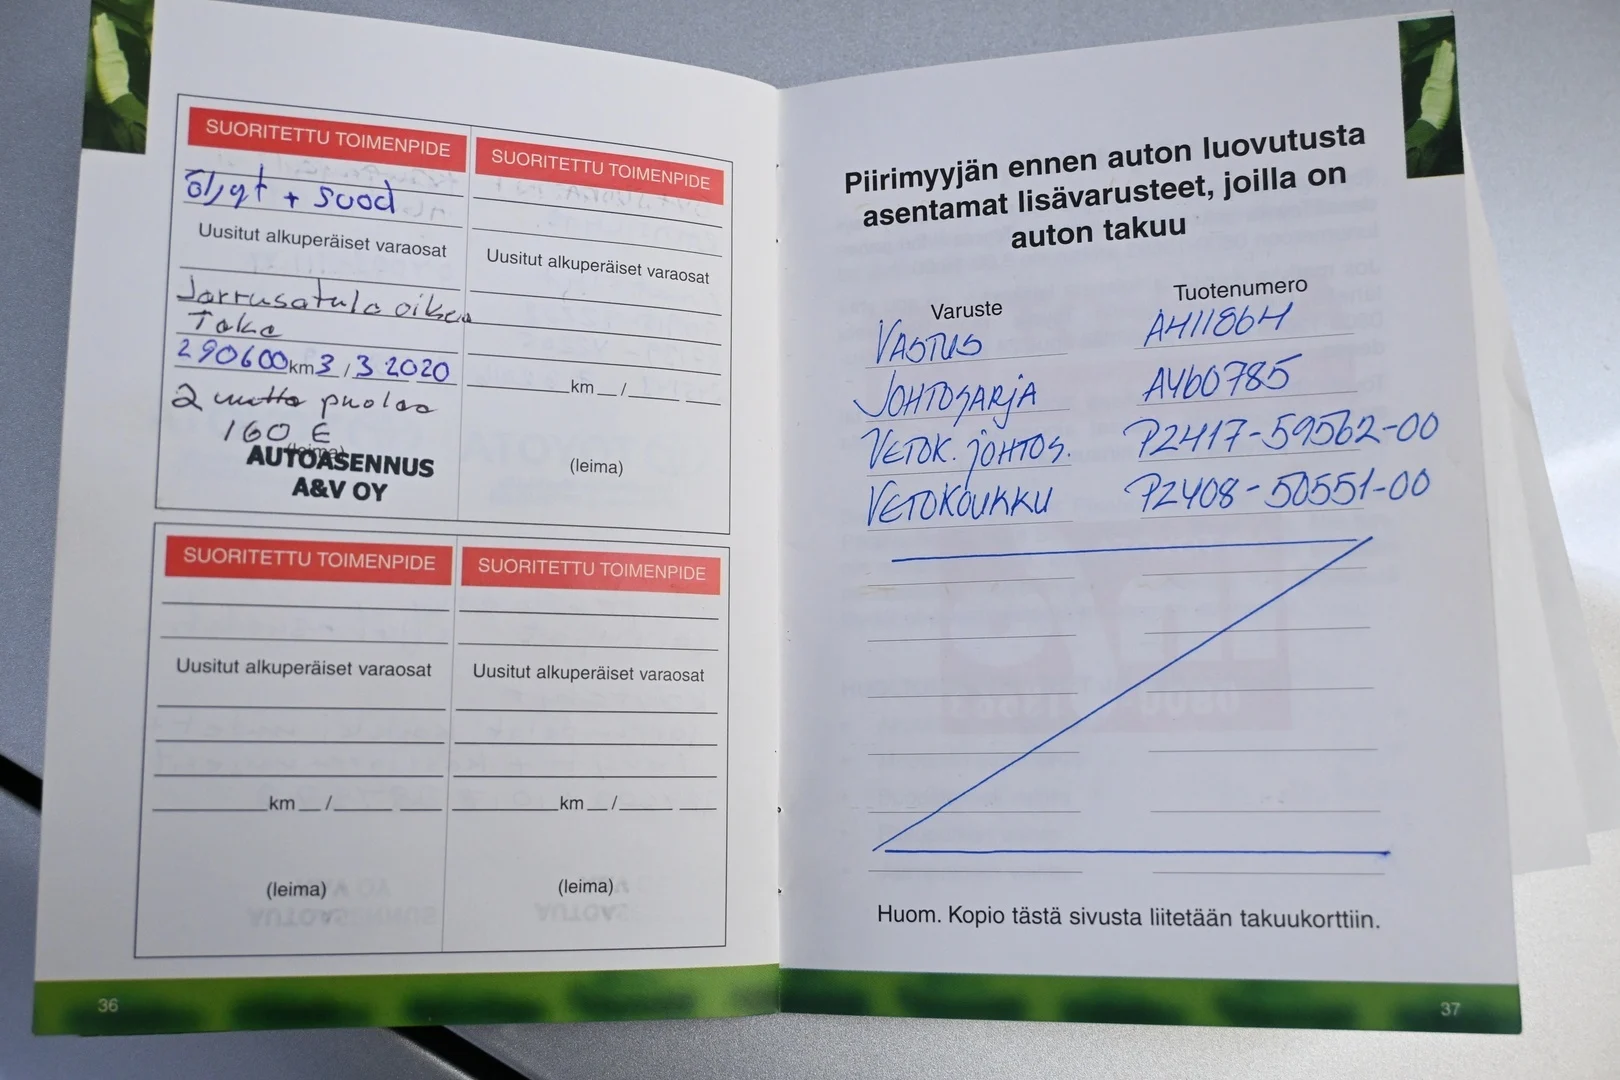 SUORITETTU TOIMENPIDE
öljyt + suod
Uusitut alkuperäiset varaosat
Jarrusatula oikea
Taka
290600 km 3 / 3 2020
2 uutta puolaa
160 €
(leima)
AUTOASENNUS
A&V OY
SUORITETTU TOIMENPIDE
Uusitut alkuperäiset varaosat
km /
(leima)
SUORITETTU TOIMENPIDE
Uusitut alkuperäiset varaosat
km /
(leima)
SUORITETTU TOIMENPIDE
Uusitut alkuperäiset varaosat
km /
(leima)
36
Piirimyyjän ennen auton luovutusta
asentamat lisävarusteet, joilla on
auton takuu
Varuste Tuotenumero
VASTUS A411864
JOHTOSARJA A460785
VETOK. JOHTOS. PZ417-59562-00
VETOKOUKKU PZ408-50551-00
Huom. Kopio tästä sivusta liitetään takuukorttiin.
37